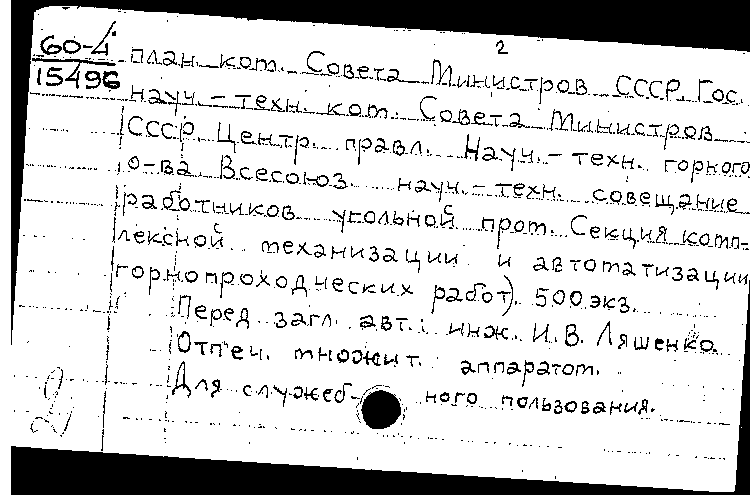 2
60-4
15496
план. ком. Совета Министров СССР. Гос.
науч.-техн. ком. Совета Министров
СССР. Центр. правл. Науч.-техн. горного
о-ва. Всесоюз. науч.-техн. совещание
работников угольной пром. Секция комп-
лексной механизации и автоматизации
горнопроходческих работ). 500 экз.
Перед загл. авт.: инж. И. В. Ляшенко.
Отпеч. множит. аппаратом.
Для служеб- ного пользования.
2